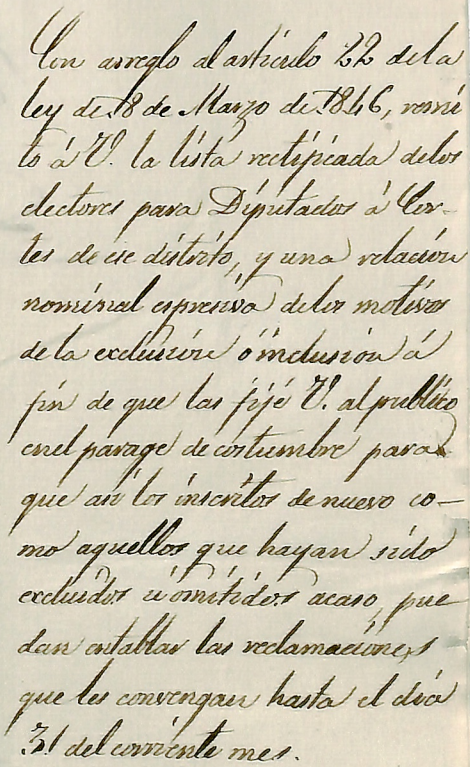 Con arreglo al artículo 22 de la
ley de 18 de Marzo de 1846, remi
to á V. la lista rectificada de los
electores para Diputados á Cor-
tes de ese distrito, y una relación
nominal espresiva de los motivos
de la exclusión ó inclusión á
fin de que las fijé V. al publico
en el parage de costumbre para
que así los inscritos de nuevo co-
mo aquellos que hayan sido
excluidos ú omitidos acaso, pue
dan entablar las reclamaciones
que les convengan hasta el día
31 del corriente mes.